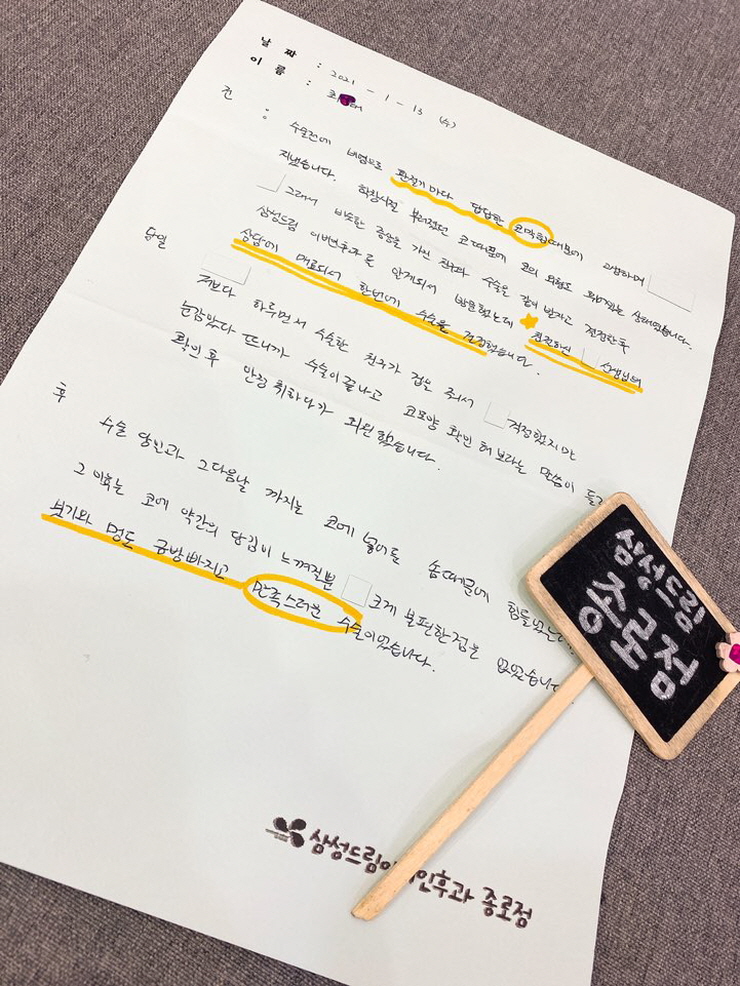 날 짜 : 2021 - 1 - 13 (수)
이 름 :
전 : 수술전에 비염으로 환절기 마다 답답한 코막힘때문에 고생하며
지냈습니다. 학창시절 부러졌던 코 때문에 코의 외형도 휘어있는 상태였습니다.
그래서 비슷한 증상을 가진 친구와 수술을 같이 받자고 결정한 후
삼성드림 이비인후과를 알게되서 방문했는데 친절하신 선생님의
상담에 매료되서 한번에 수술을 결정했습니다.
당일 저보다 하루먼저 수술한 친구가 겁을 줘서 걱정했지만
눈감았다 뜨니까 수술이 끝나고 코모양 확인 해 보라는 말씀이 들
확인 후 안정 취하다가 퇴원 했습니다.
후 수술 당일과 그다음날 까지는 코에 넣어둔 솜때문에 힘들었
그 이후는 코에 약간의 당김이 느껴질뿐 크게 불편한점은 없었습니
붓기와 멍도 금방빠지고 만족스러운 수술이었습니다.
삼성드림
종로점
삼성드림이 인후과 종로점